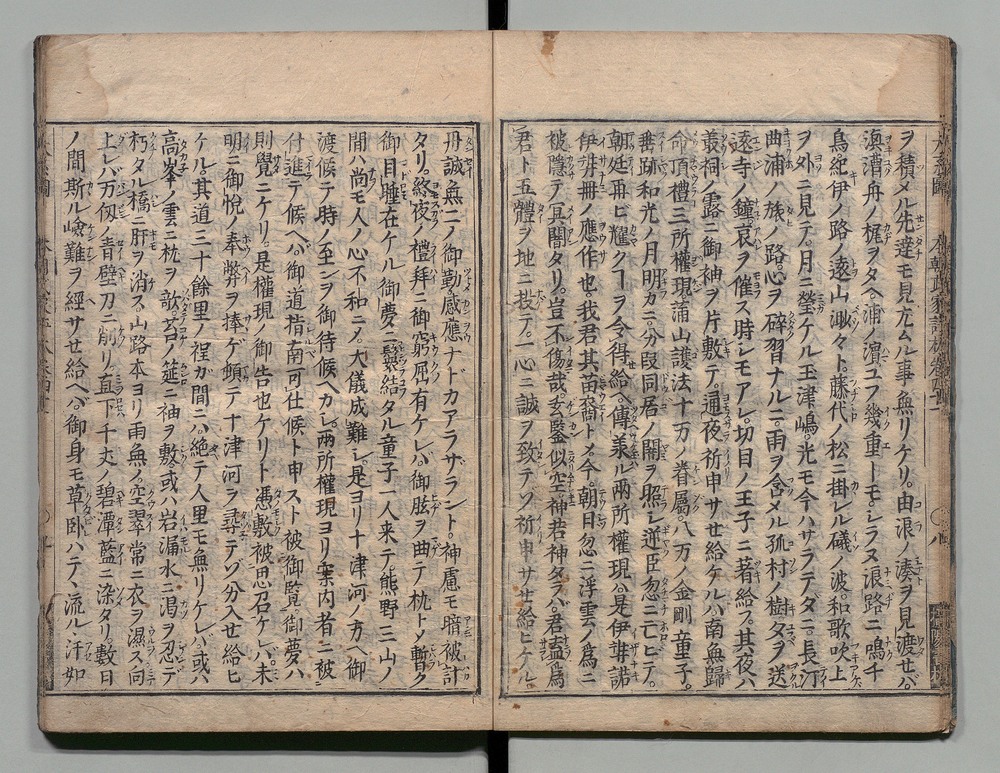 ヲ積メル先達モ見尤ムル事無リケリ。由浪ノ湊ヲ見渡セバ。
澳漕舟ノ梶ヲタヘ。浦ノ濵ユフ幾重トモ。シラヌ浪路ニ鳴千
鳥。紀伊ノ路ノ遠山眇々ト。藤代ノ松ニ掛レル礒ノ波。和歌吹上
ヲ外ニ見テ。月ニ瑩ケル玉津嶋。光モ今ハサラデダニ。長汀
曲浦ノ旅ノ路。心ヲ碎習ナルニ。雨ヲ含メル孤村ノ樹。夕ヲ送
遠寺ノ鐘。哀ヲ催ス時シモアレ。切目ノ王子ニ著給。其夜ハ
叢祠ノ露ニ御袖ヲ片敷テ。通夜祈申サセ給ケルハ。南無歸
命頂禮三所權現。満山護法。十万ノ眷属。八万ノ金剛童子。
垂跡和光ノ月明カニ。分段同居ノ闇ヲ照シ。逆臣忽ニ亡ビテ。
朝廷再ビ耀クヿヲ令得給。傳羕ル兩所權現ハ。是伊弉諾
伊弉冊ノ應作也。我君其苗裔トメ。今朝日忽ニ浮雲ノ爲ニ
被隱テ冥闇タリ。豈不傷哉。玄鑒似空。神若神タラバ。君盍爲
君ト。五體ヲ地ニ投テ。一心ニ誠ヲ致テゾ祈申サセ給ヒケル。
丹誠無二ノ御勤。感應ナドカアラザラント。神慮モ暗被計
タリ。終夜ノ禮拜ニ御窮屈有ケレバ。御肱ヲ曲テ枕トメ。暫ク
御目睡在ケル御夢ニ。鬟結タル童子一人来テ。熊野三山ノ
間ハ尚モ人ノ心不和ニメ。大儀成難シ。是ヨリ十津河ノ方ヘ御
渡候テ。時ノ至ンヲ御待候ヘカシ。兩所權現ヨリ案内者ニ被
付進テ候ヘバ。御道指南可仕候ト申スト被御覧。御夢ハ
則覺ニケリ。是權現ノ御告也ケリト憑敷被思召ケレバ。未
明ニ御悦ノ奉弊ヲ捧ゲ。頓テ十津河ヲ尋テゾ分入セ給ヒ
ケル。其道三十餘里ノ程ガ間ニハ絶テ人里モ無リケレバ。或ハ
高峯ノ雲ニ枕ヲ欹。苔ノ筵ニ袖ヲ敷。或ハ岩漏水ニ渇ヲ忍デ。
朽タル橋ニ肝ヲ消ス。山路本ヨリ雨無メ。空翠常ニ衣ヲ濕ス。向
上レバ万仭ノ青壁刀ニ削リ。直下千丈ノ碧潭藍ニ染タリ。數日
ノ間斯ル嶮難ヲ經サセ給ヘバ。御身モ草臥ハテヽ。流ルヽ汗如